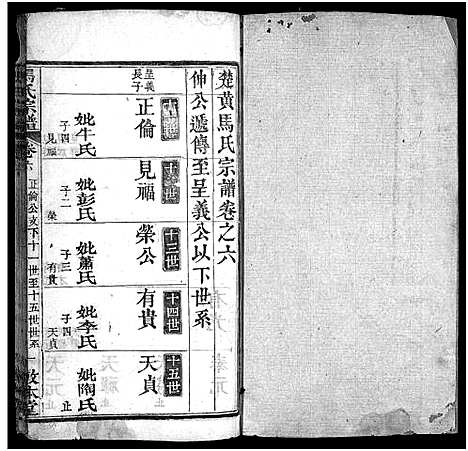 楚黃馬氏宗譜卷之六
伸公遞傳至呈義公以下世系
十一世
呈義長子
正倫
妣牛氏
子四
見福
十二世
見福
妣彭氏
子二
榮
十三世
榮公
妣蕭氏
子三
有貴
十四世
有貴
妣李氏
子四
天貞
十五世
天貞
妣陶氏
止
馬氏宗譜
卷六
正倫公支下十一世至十五世世系
一